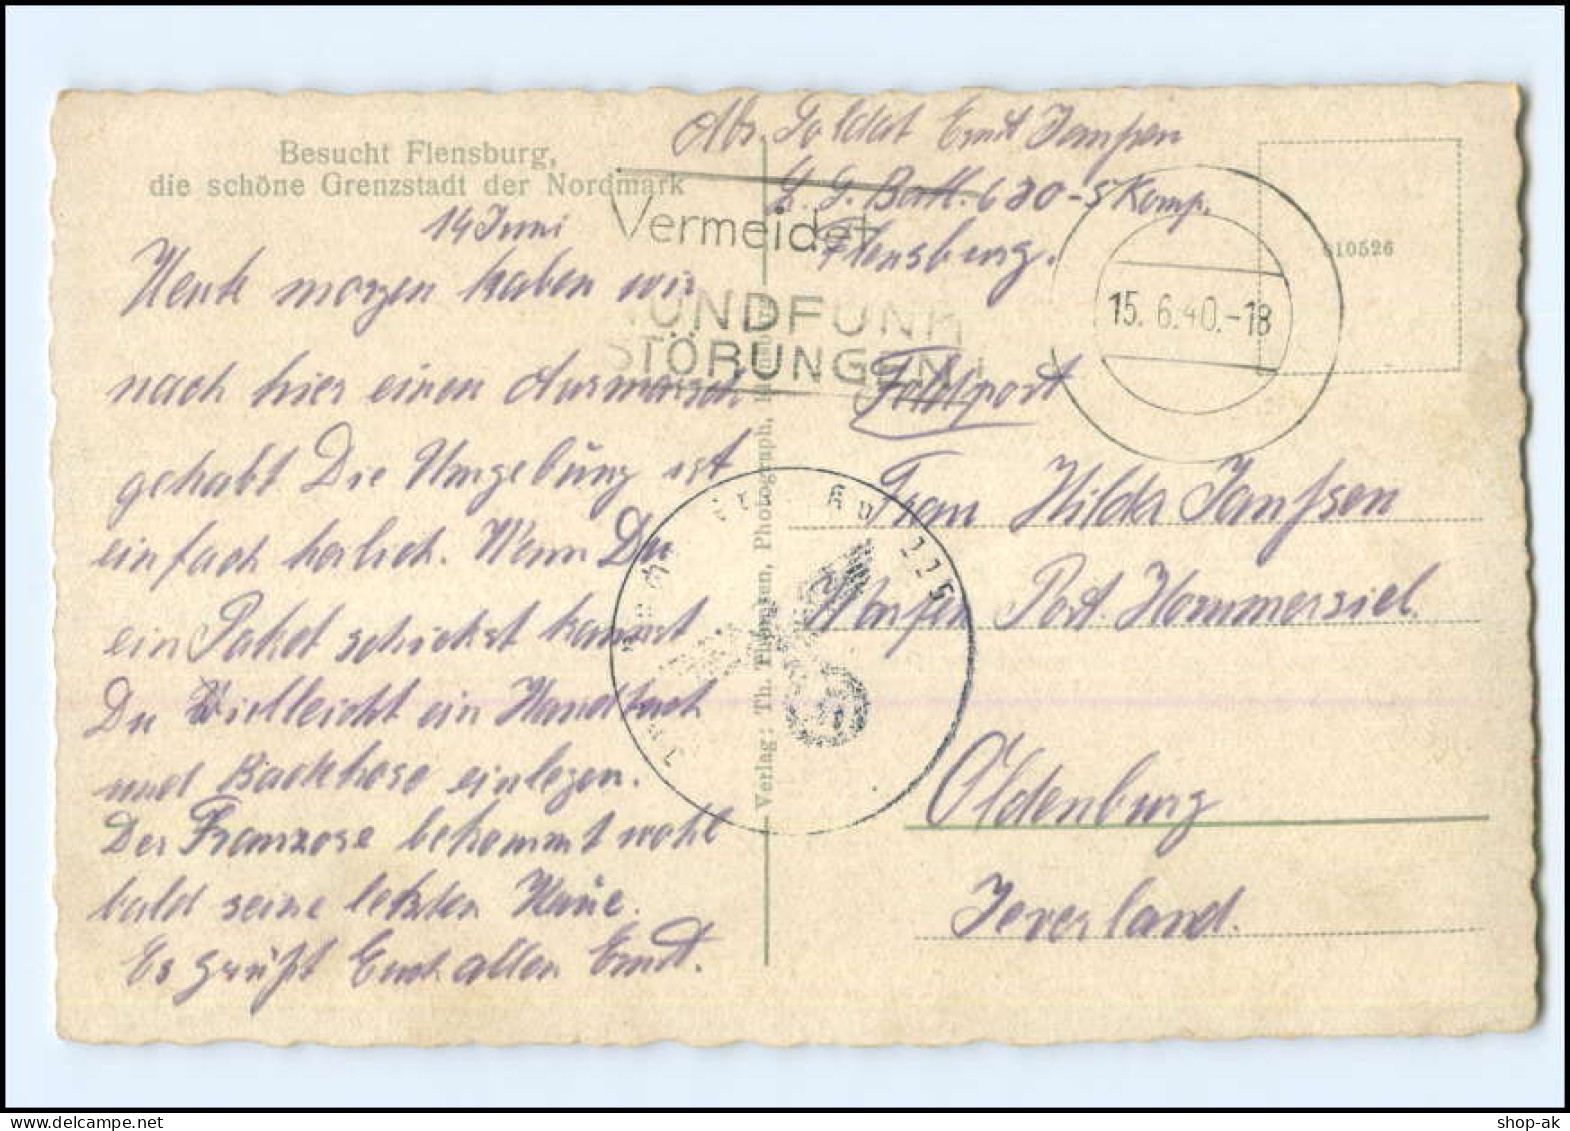 Besucht Flensburg,
die schöne Grenzstadt der Nordmark
14 Juni
Heute morgen haben wir
nach hier einen Ausmarsch
gehabt Die Umgebung ist
einfach herlich. Wenn Du
ein Paket schickst kannst
Du Vielleicht ein Handtuch
und Badehose einlegen.
Der Franzose bekommt wohl
bald seine letzten Haue.
Es grüßt Euch allen Ernst.
Abs. Soldat Ernst Janßen
Batl. 630-5 Komp.
Flensburg.
Vermeidet
RUNDFUNK
STÖRUNGEN!
15.6.40.-18
010526
Feldpost
Frau Hilda Janßen
Post. Hornmersiel.
Oldenburg
Jeverland.
Verlag: Th. Thomsen, Photograph, Flensburg